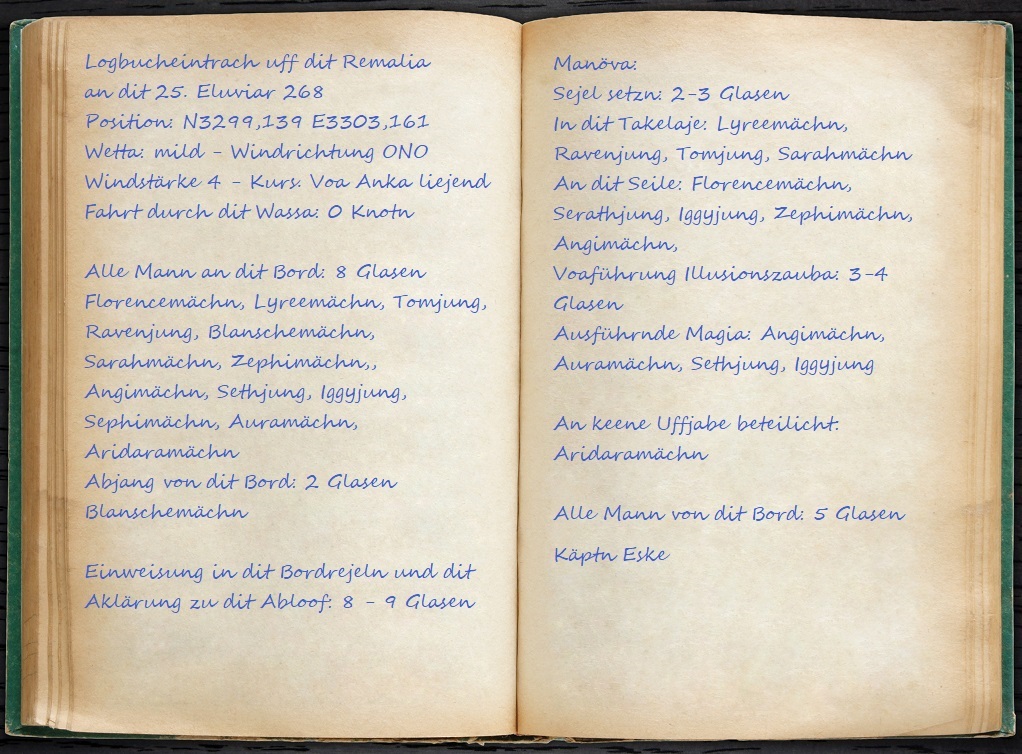 Logbucheintrach uff dit Remalia
an dit 25. Eluviar 268
Position: N3299,139 E3303,161
Wetta: mild - Windrichtung ONO
Windstärke 4 - Kurs. Voa Anka liejend
Fahrt durch dit Wassa: 0 Knotn
Alle Mann an dit Bord: 8 Glasen
Florencemächn, Lyreemächn, Tomjung,
Ravenjung, Blanschemächn,
Sarahmächn, Zephimächn,,
Angimächn, Sethjung, Iggyjung,
Sephimächn, Auramächn,
Aridaramächn
Abjang von dit Bord: 2 Glasen
Blanschemächn
Einweisung in dit Bordrejeln und dit
Aklärung zu dit Abloof: 8 - 9 Glasen
Manöva:
Sejel setzn: 2-3 Glasen
In dit Takelaje: Lyreemächn,
Ravenjung, Tomjung, Sarahmächn
An dit Seile: Florencemächn,
Serathjung, Iggyjung, Zephimächn,
Angimächn,
Voaführung Illusionszauba: 3-4
Glasen
Ausführnde Magia: Angimächn,
Auramächn, Sethjung, Iggyjung
An keene Uffjabe beteilicht:
Aridaramächn
Alle Mann von dit Bord: 5 Glasen
Käptn Eske